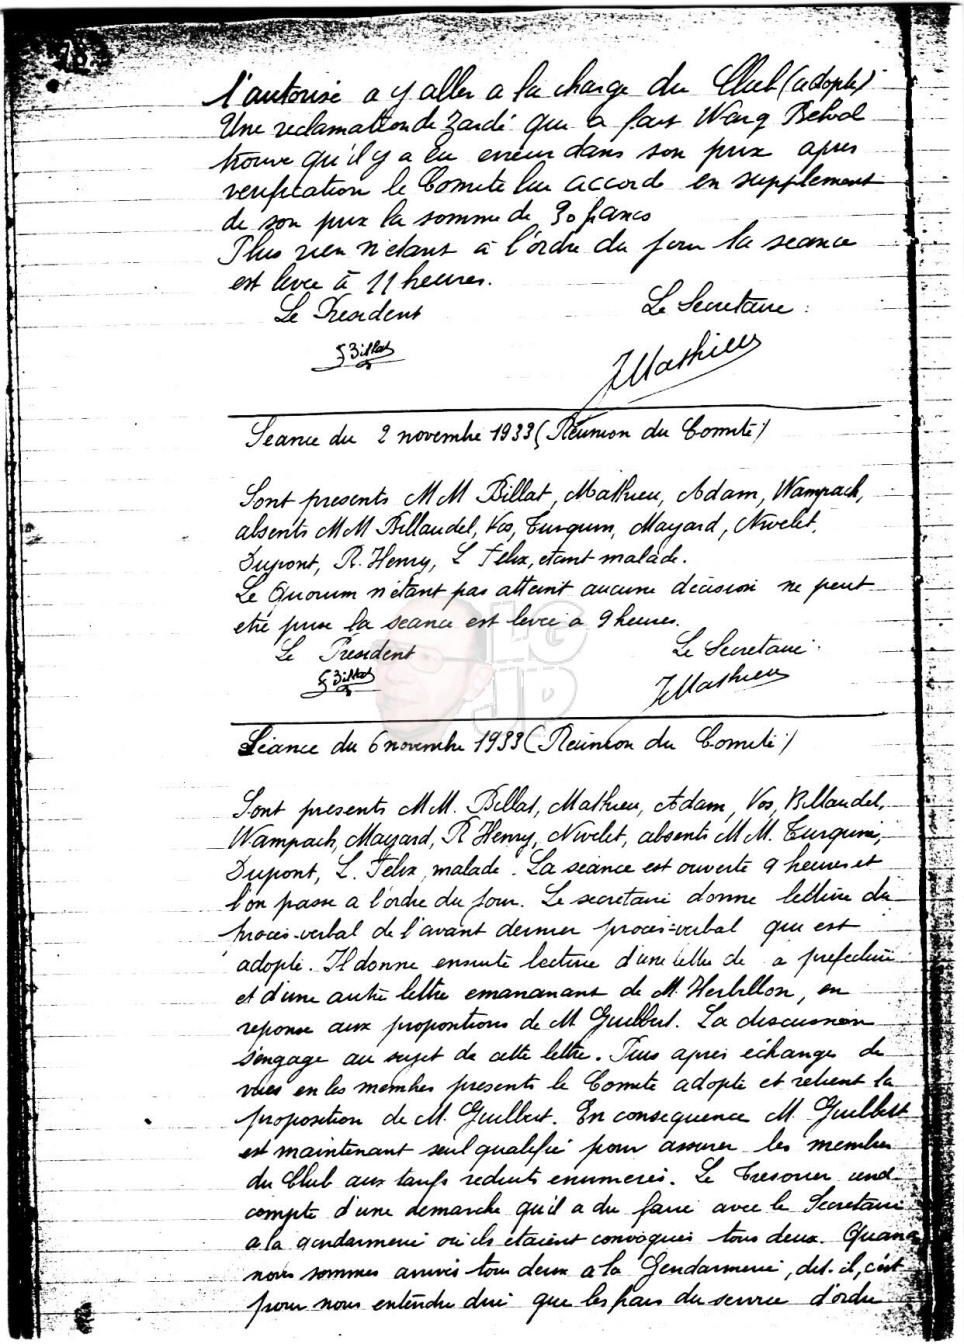 78
l'autorise a y aller a la charge du Club (adopté)
Une reclamation de Zardé que a fait Warq
trouve qu'il y a eu erreur dans son prix apres
verification le Comite lui accord en supplement
de son prix la somme de 90 francs
Plus rien n'etant à l'ordre du jour la seance
est levee à 11 heures.
Le President Le Secretaire :
G Billat
J Mathieu
Seance du 2 novembre 1933 (Réunion du Comité)
Sont presents M M Billat, Mathieu, Adam, Wampach,
absents M M Billaudel, Vos, Turquin, Mayard, Nivelet,
Dupont, R. Henry, L Felix, etant malade.
Le Quorum n'étant pas atteint aucune décision ne peut
etre prise la seance est levee a 9 heures.
Le President Le Secretaire.
G Billat
J Mathieu
LG
JP
Séance du 6 novembre 1933 (Reunion du Comité)
Sont presents M M. Billat, Mathieu, Adam, Vos, Billaudel,
Wampach, Mayard, R Henry, Nivelet, absents M M. Turquin,
Dupont, L. Felix, malade. La séance est ouverte 9 heures et
l'on passe a l'ordre du jour. Le secretaire donne lecture du
proces-verbal de l'avant dernier procès-verbal qui est
adopté. Il donne ensuite lecture d'une lettre de a prefecture
et d'une autre lettre emananant de M. Herbillon, en
reponse aux propositions de M Guilbert. La discussion
s'engage au sujet de cette lettre. Puis apres échange de
vues en les membres presents le Comite adopte et retient la
proposition de M. Guilbert. En consequence M. Guilbert
est maintenant seul qualifié pour assurer les membres
du Club aux tarifs reduits enumerés. Le Tresorier rend
compte d'une demarche qu'il a du faire avec le Secretaire
a la gendarmerie où ils etaient convoqués tous deux. Quand
nous sommes arrivés tous deux a la Gendarmerie, dit-il, c'est
pour nous entendre dire que les frais du service d'ordre